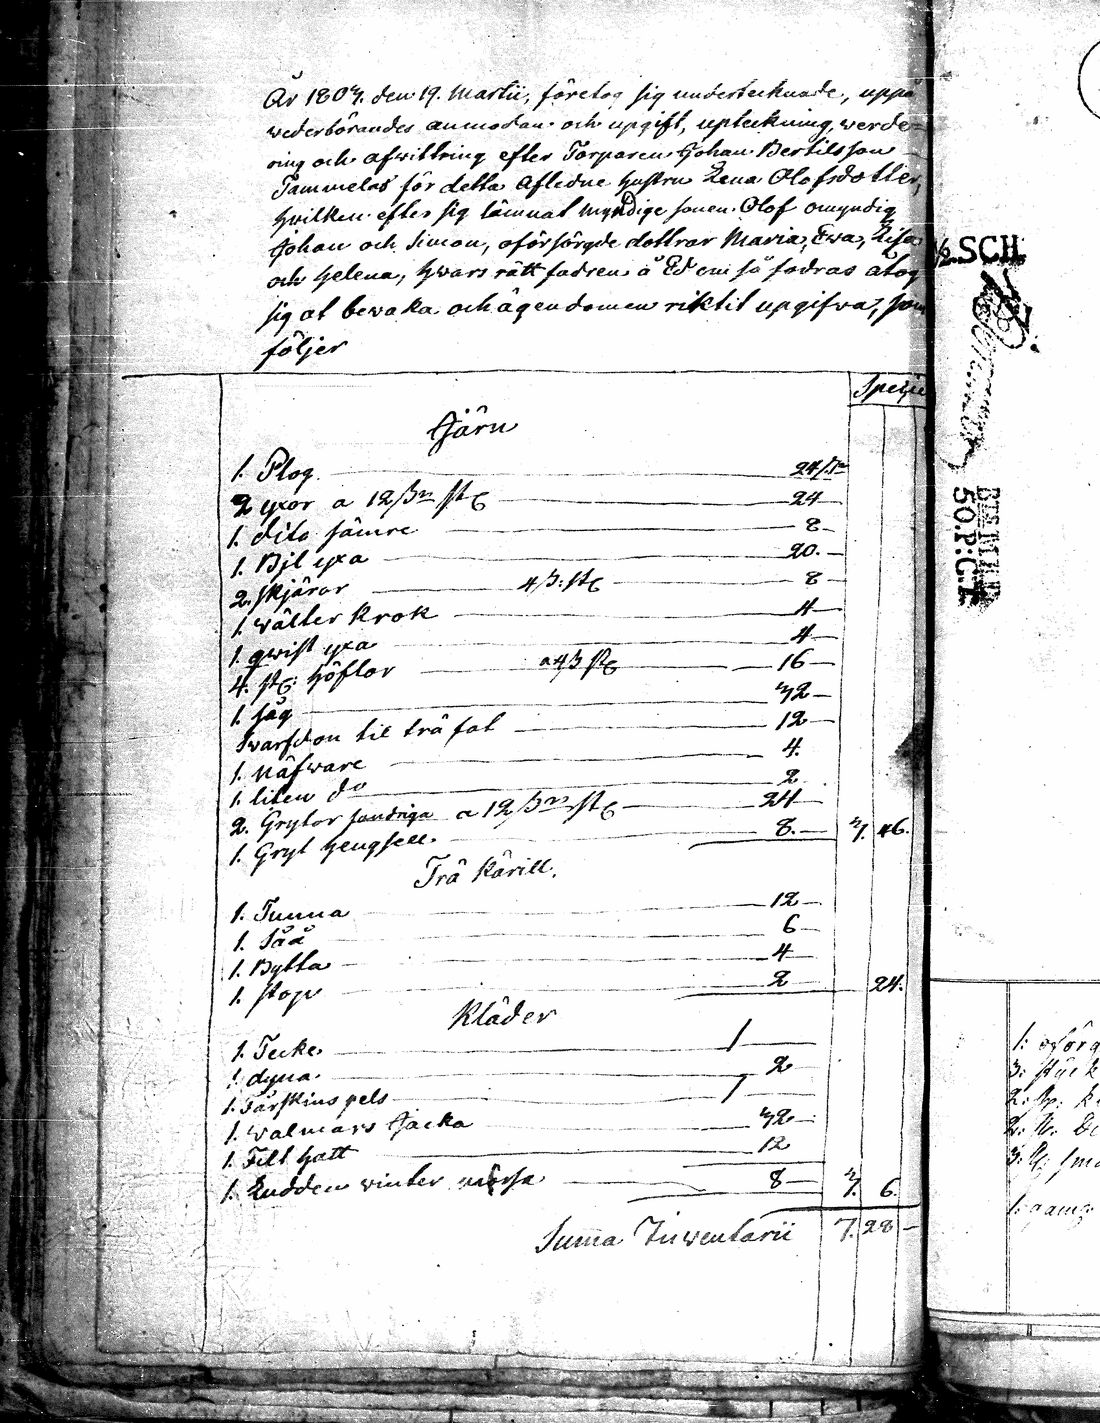 År 1803. den 19. Martii, företog sig undertecknade, uppå
wederbörandes anmodan och upgift, upteckning, werde=
ring och afwittring efter Torparen Johan Bertilsson
Tammelas för detta Afledne hustru Lena Olofsdotter,
hvilken efter sig lämnat myndige sonen Olof omyndig
Johan och Simon, oförsörgde dottrar Maria, Ewa, Lisa
och Helena, hwars rätt fadren å Ed om så fodras åtog
sig at bevaka och ägendomen riktit upgifva, som
följer
Speçie
Järn
1. Plog 24
2 yxor a 12 st 24
1. dito sämre 8
1. Bjl yxa 20.
2. skjäror 4 st 8
1. wälter krok 4
1. qwist yxa 4
4. st. höflor a 4 st 16
1. såg 32
Swarfdon til trä fat 12
1. Näfware 4.
1. liten do 2
2. Grytor sandriga a 12 st 24
1. Gryt hengsell. 8. 3. 46.
Trä kärill.
1. Tunna 12
1. Såå 6
1. Bytta 4
1. stop 2 24.
Kläder
1. Tecke 1
1. dyna 2
1. Fårskins pels 1
1. walmars Jacka 32
1. Filt hatt 12
1. Ludden winter mörsa 8 3. 6.
Summa Inwentarii 7. 28
SCH
50.P:C.T
1: oförg
3: styck
1. gamg